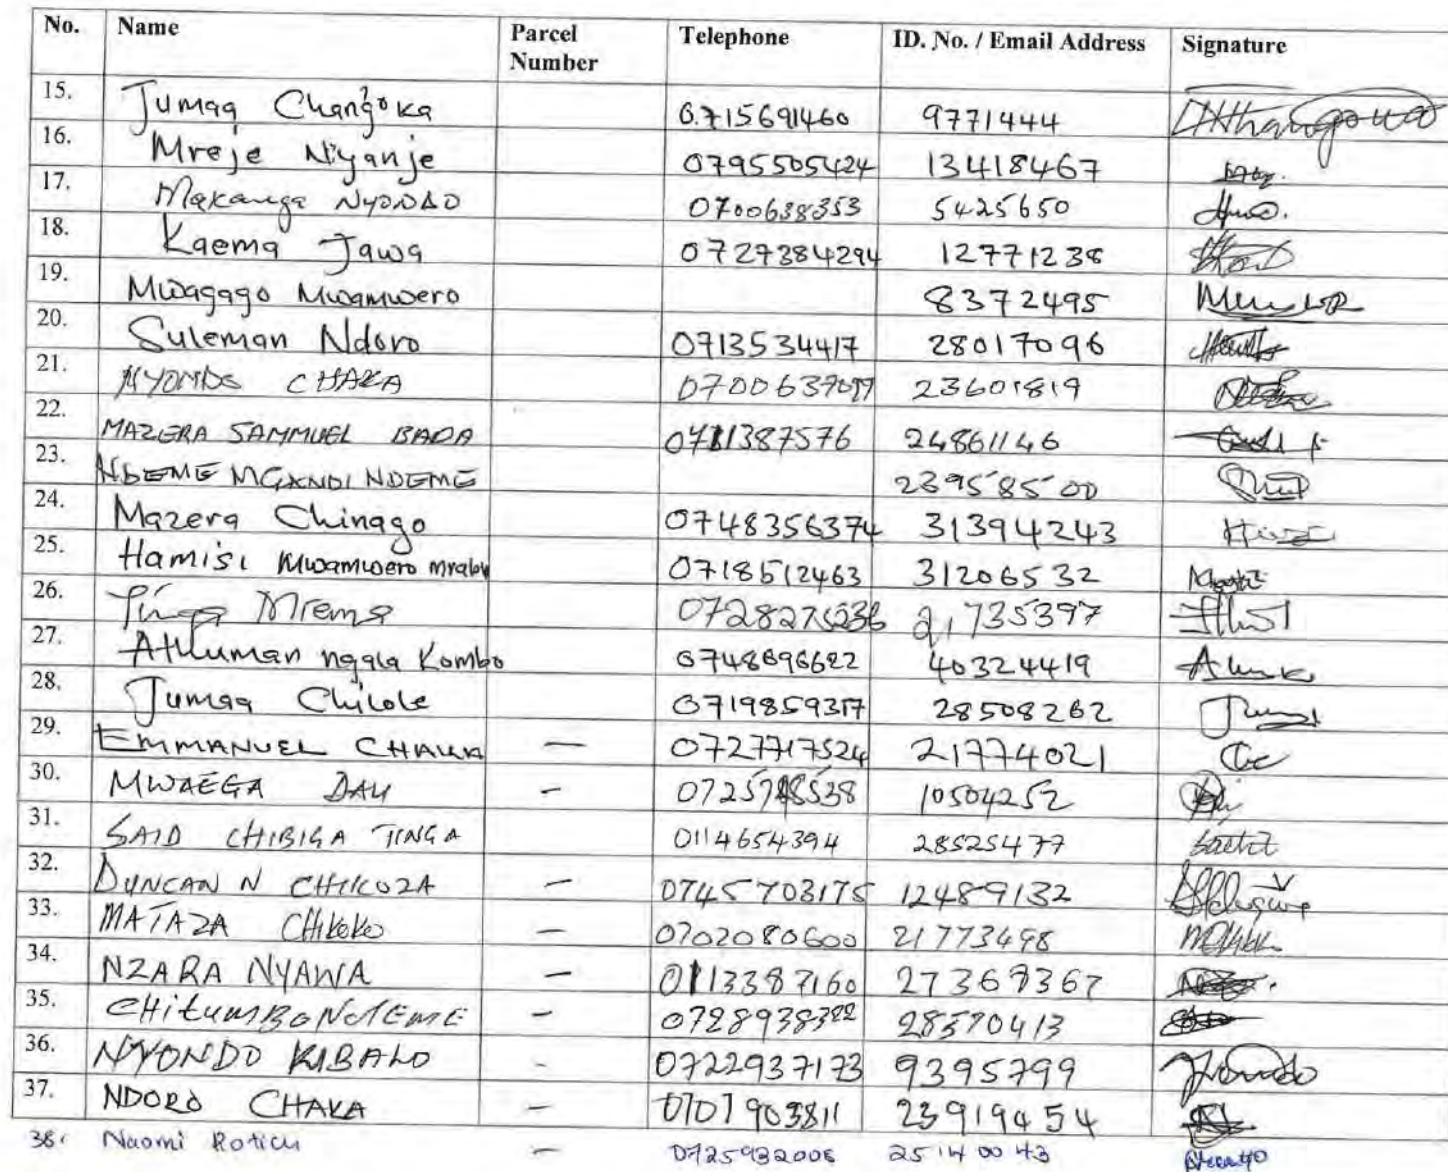 No. Name Parcel Number Telephone ID. No. / Email Address Signature
15. Jumaa Changoka 0715691460 9771444
16. Mreje Niyanje 0795505424 13418467
17. Makanga NYONDO 0700638353 5425650
18. Kaema Jawa 0727384294 12771238
19. Mwagago Mwamwero 8372495
20. Suleman Ndoro 0713534417 28017096
21. NYONDO CHAKA 23601819
22. MAZERA SAMMUEL BADA 0711387576 24861146
23. NDEME MGANDI NDEME 239585 00
24. Mazera Chinago 0748356374 31394243
25. Hamisi Mwamwero mrabu 0718512463 31206532
26. Tinga Mrema 0728275236 21735397
27. Athuman ngala Kombo 0748696622 40324419
28. Jumaa Chilole 0719859317 28508262
29. EMMANUEL CHAKA — 0727717524 21774021
30. MWAEGA DAU — 10504252
31. SAID CHIBIGA TINGA 0114654394 28525477
32. DUNCAN N CHIKOZA — 0745703175 12489132
33. MATAZA CHIKOKO — 0702080600 21773498
34. NZARA NYAWA — 0113387160 27368367
35. CHITUMBO NDEME — 0728938322 28570413
36. NYONDO KIBALO - 0722937173 9395799
37. NDORO CHAKA — 0707903811 23919454
38. Naomi Rotich — 0725932006 25140043